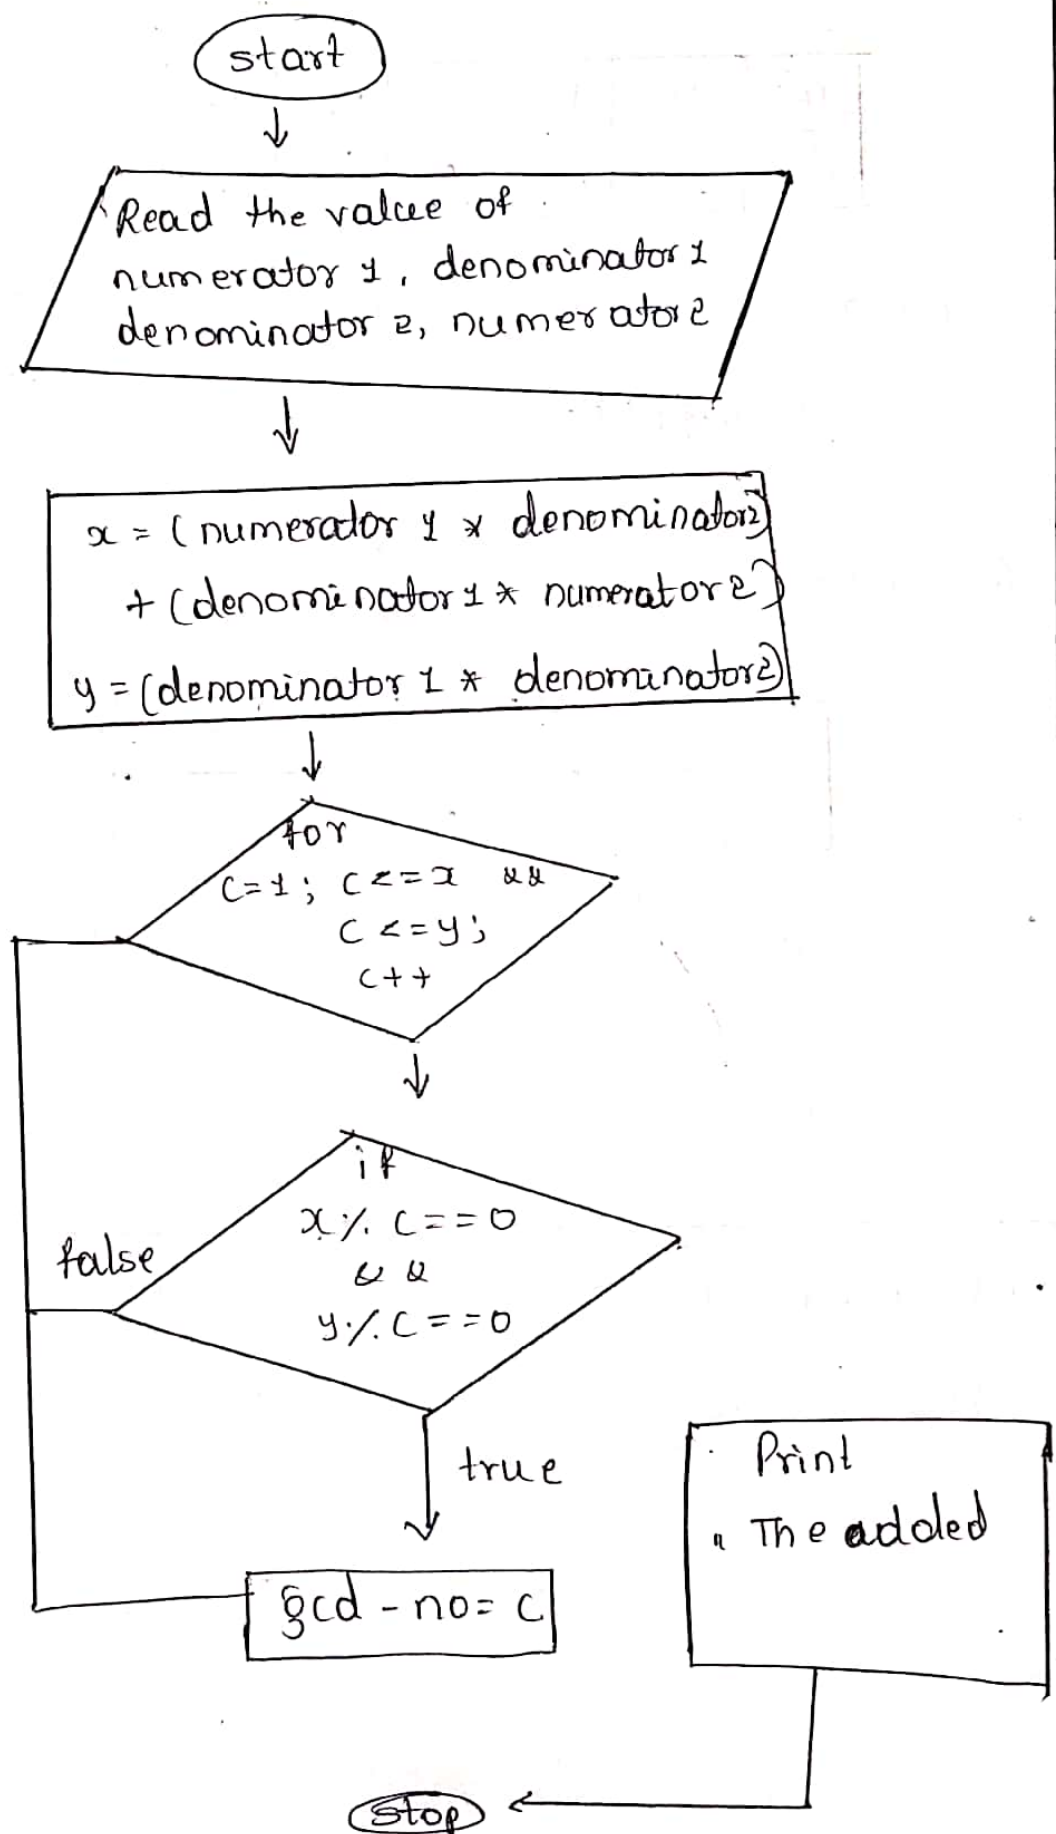 start
Read the value of
numerator 1, denominator 1
denominator 2, numerator 2
x = (numerador 1 * denominator2)
+ (denominator 1 * numerator 2)
y = (denominator 1 * denominator2)
for
C=1; C<=x &&
C<=y;
C++
if
x % C==0
&&
y % C==0
false
true
gcd-no= C
Print
" The added
Stop